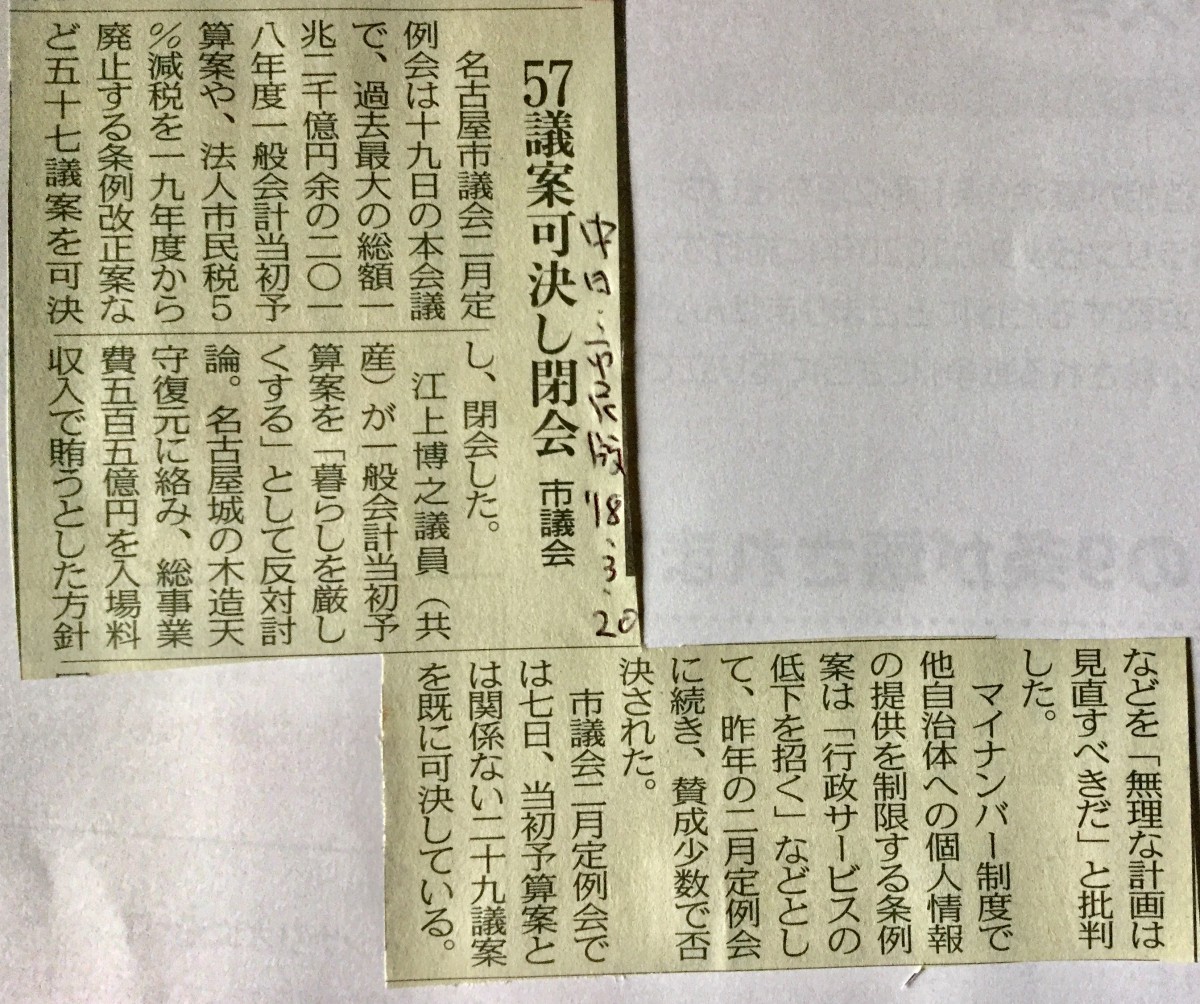 57議案可決し閉会 市議会
中日:市民版 '18.3.20
名古屋市議会二月定
例会は十九日の本会議
で、過去最大の総額一
兆二千億円余の二〇一
八年度一般会計当初予
算案や、法人市民税5
%減税を一九年度から
廃止する条例改正案な
ど五十七議案を可決
し、閉会した。
江上博之議員(共
産)が一般会計当初予
算案を「暮らしを厳し
くする」として反対討
論。名古屋城の木造天
守復元に絡み、総事業
費五百五億円を入場料
収入で賄うとした方針
などを「無理な計画は
見直すべきだ」と批判
した。
マイナンバー制度で
他自治体への個人情報
の提供を制限する条例
案は「行政サービスの
低下を招く」などとし
て、昨年の二月定例会
に続き、賛成少数で否
決された。
市議会二月定例会で
は七日、当初予算案と
は関係ない二十九議案
を既に可決している。